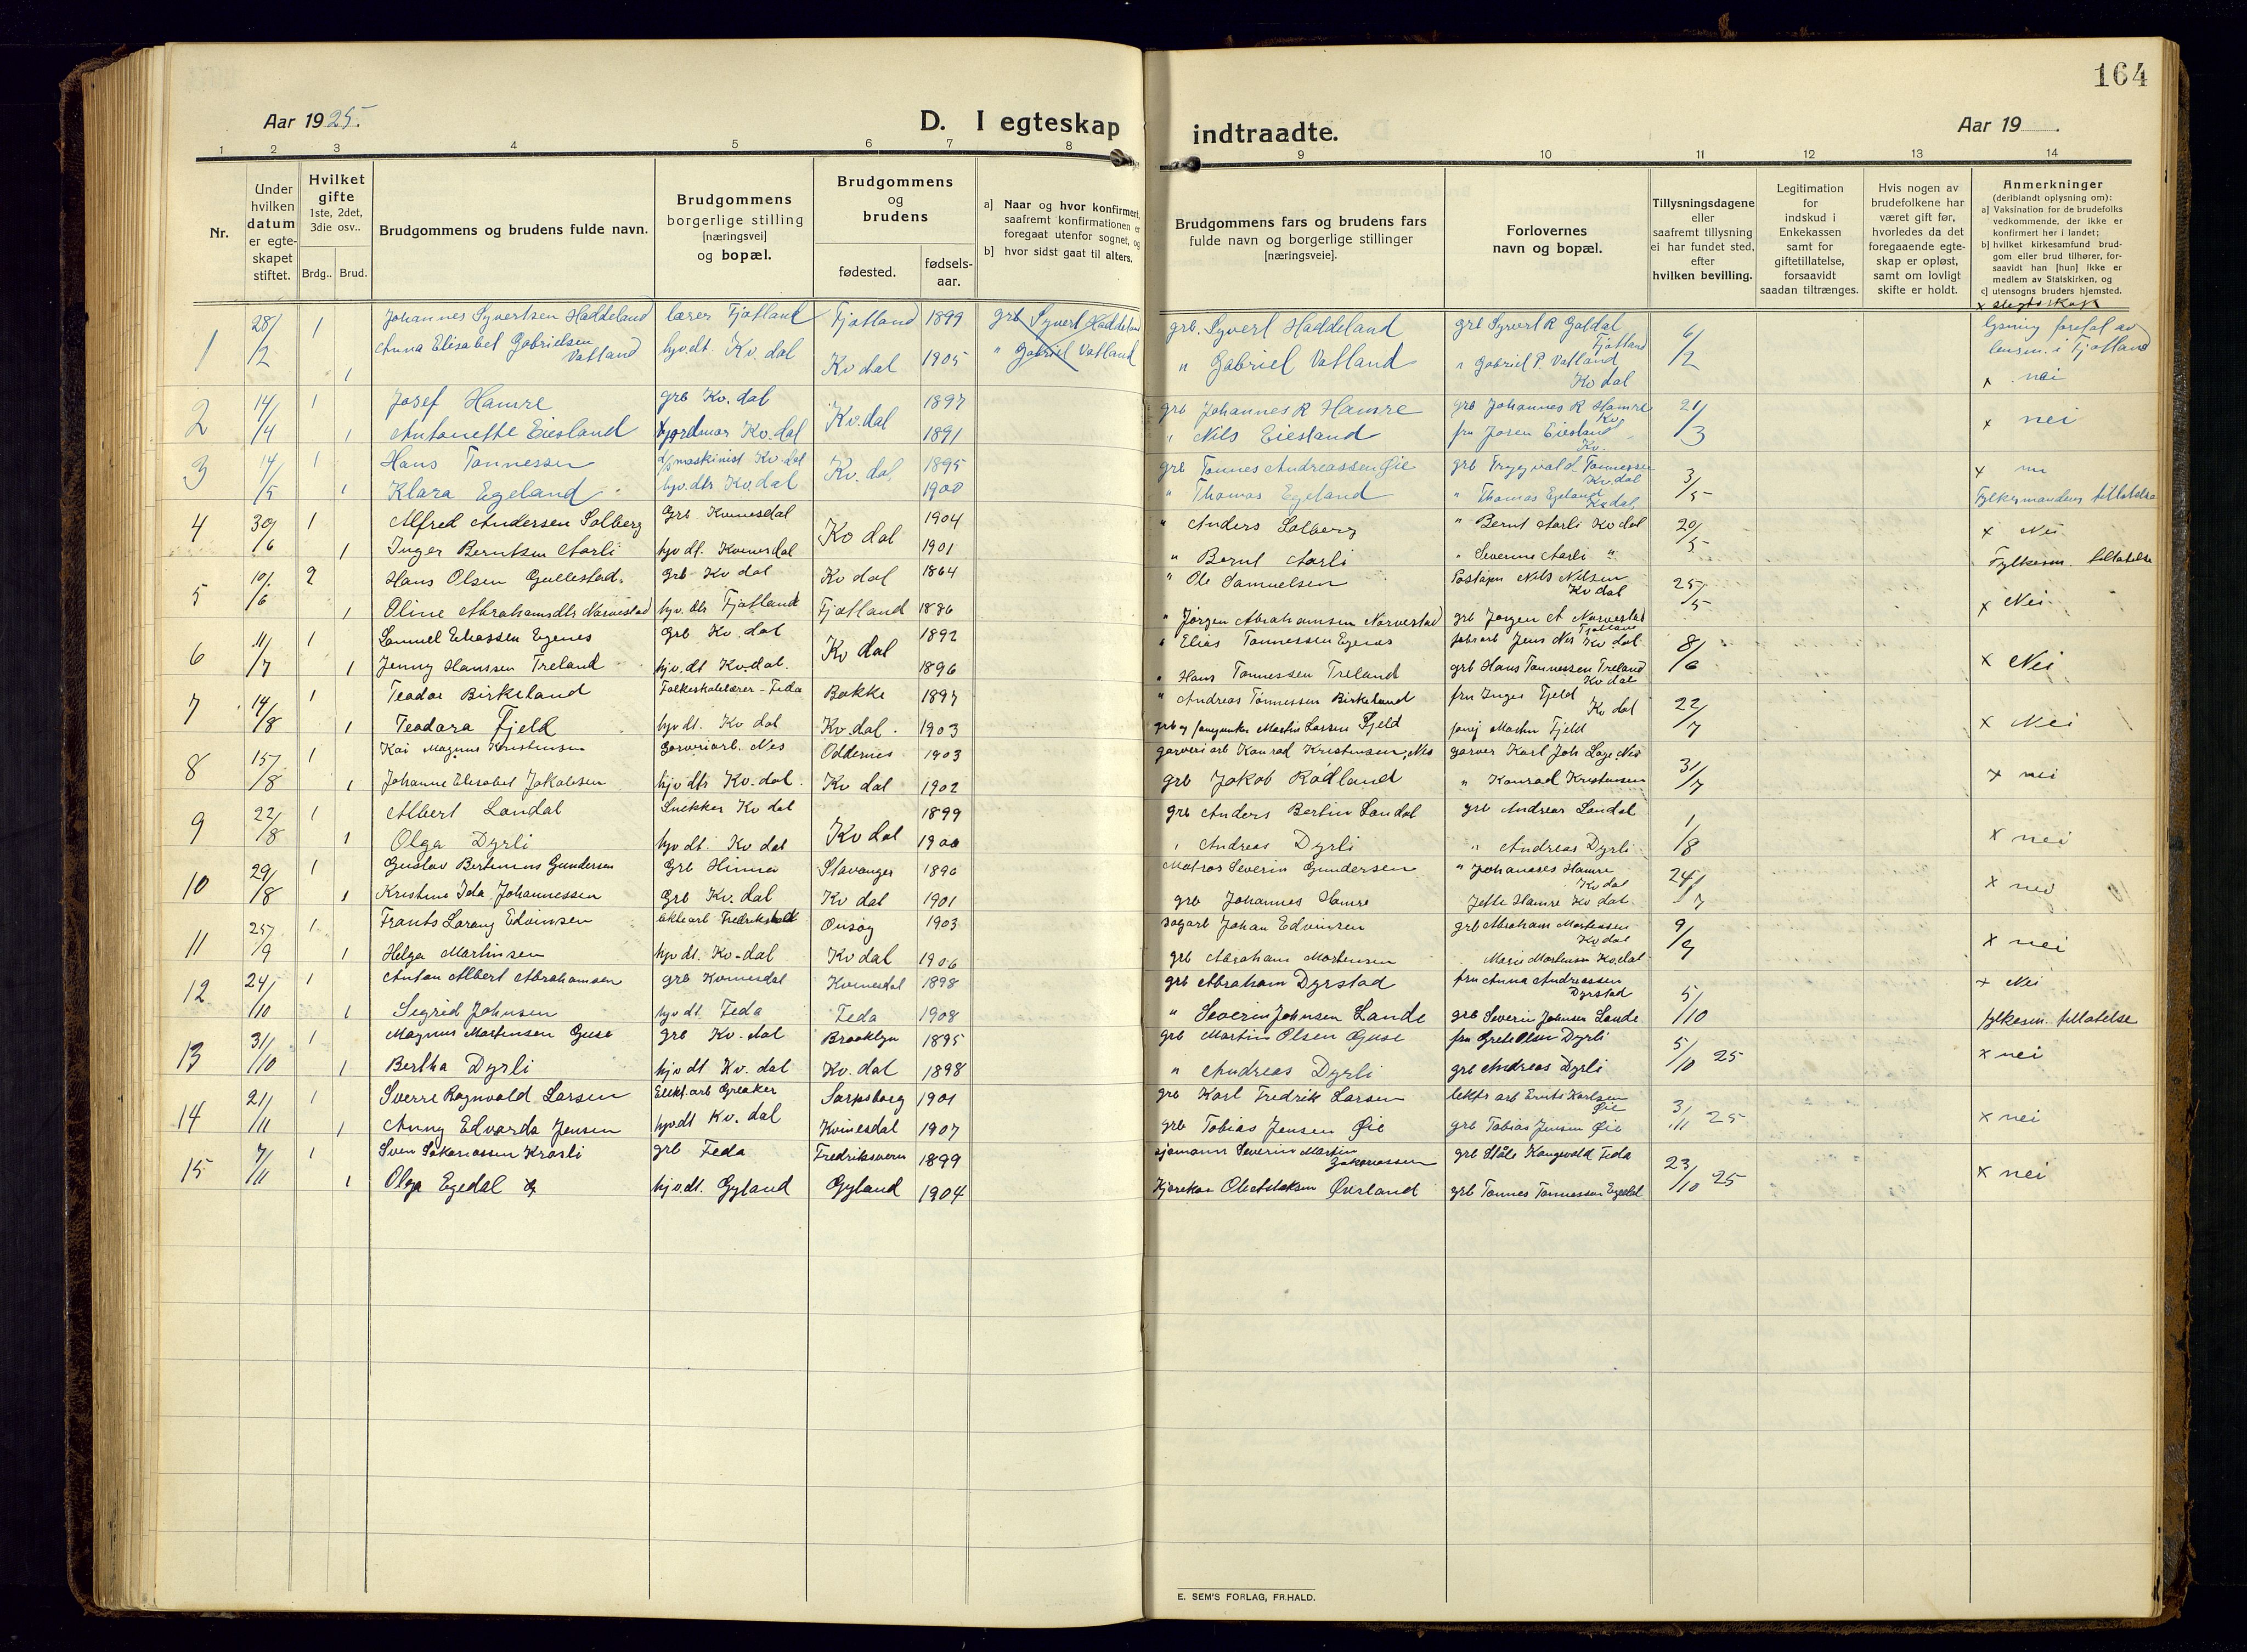 164
Aar 1925.
D. I egteskap
indtraadte.
Aar 19
1 2 3 4 5 6 7 8
9 10 11 12 13 14
Nr.
Under hvilken datum er egteskapet stiftet.
Hvilket gifte
1ste, 2det, 3die osv..
Brdg.. Brud.
Brudgommens og brudens fulde navn.
Brudgommens borgerlige stilling [næringsvei] og bopæl.
Brudgommens og brudens
fødested.
fødsels-aar.
a) Naar og hvor konfirmert, saafremt konfirmationen er foregaat utenfor sognet, og
b) hvor sidst gaat til alters.
Brudgommens fars og brudens fars fulde navn og borgerlige stillinger [næringsveie].
Forlovernes navn og bopæl.
Tillysningsdagene eller saafremt tillysning ei har fundet sted, efter hvilken bevilling.
Legitimation for indskud i Enkekassen samt for giftetillatelse, forsaavidt saadan tiltrænges.
Hvis nogen av brudefolkene har været gift før, hvorledes da det foregaaende egteskap er opløst, samt om lovligt skifte er holdt.
Anmerkninger
(deriblandt oplysning om):
a) Vaksination for de brudefolks vedkommende, der ikke er konfirmert her i landet;
b) hvilket kirkesamfund brudgom eller brud tilhører, forsaavidt han [hun] ikke er medlem av Statskirken, og
c) utensogns bruders hjemsted.
x slegtskap
1 28/2 1 Johannes Syvertsen Haddeland lærer Fjotland Fjotland 1899 grb Syvert Haddeland grb. Syvert Haddeland grb Syvert R Galdal Fjotland 6/2 lysning foretat av lensm. i Fjotland
1 Anna Elisabet Gabrielsen Vatland hjv.dt. Kv.dal Kv dal 1905 " Gabriel Vatland " Gabriel Vatland " Gabriel P. Vatland Kv dal x nei
2 14/4 1 Josef Hamre grb Kv. dal Kv.dal 1897 grb Johannes R Hamre grb Johannes R Hamre Kv. 21/3 x nei
1 Antonette Eiesland jordmor Kv.dal 1891 " Nils Eiesland fru Josen Eiesland Kv.
3 14/5 1 Hans Tønnessen maskinist Kv.dal Kv. dal 1895 grb Tønnes Andreassen Øie grb Trygvald Tønnessen Kv.dal 3/5 x
1 Klara Egeland hjv.dtr Kv.dal 1900 " Thomas Egeland " Thomas Egeland Kvdal Fylkesmandens tillatelse
4 30/6 1 Alfred Andersen Solberg Grb Kvinesdal Kv dal 1904 " Anders Solberg " Bernt Aarli Kv dal 20/5 x Nei
1 Inger Berntsen Aarli hjv dt. Kvinesdal 1901 " Bernt Aarli " Severine Aarli " Fylkesm. tillatelse
5 10/6 2 Hans Olsen Gullestad. Grb Kv dal Kv dal 1864 " Ole Samuelsen Nils Nilsen Kv dal 25/5 x Nei
1 Oline Abrahamsdtr Narvestad hjv. dtr Fjotland Fjotland 1886 " Jørgen Abrahamsen Narvestad grb Jørgen A Narvestad Fjotland
6 11/7 1 Samuel Eliassen Egenes Grb Kv. dal Kv dal 1892 " Elias Tønnessen Egenes fabr arb Jens Nes Kv. dal 8/6 x Nei
1 Jenny Hanssen Treland hjv. dt Kv.dal. 1896 " Hans Tønnessen Treland grb Hans Tønnessen Treland Kv dal
7 14/8 1 Teodor Birkeland Folkeskolelærer - Feda Bakke 1897 " Andreas Tønnessen Birkeland fru Inger Fjeld Kv dal 22/7 x Nei
1 Teodora Fjeld hjv dt. Kv dal Kv.dal. 1903 grb og Martin Larsen Fjeld Martin Fjeld
8 15/8 1 Kai Magnus Kristensen Garveriarb. Nes Oddernes 1903 garveri arb Konrad Kristensen, Nes garver Karl Joh Nes 31/7 x nei
1 Johanne Elisabet Jakobsen hjv dtr Kv. dal. Kv dal 1902 grb Jakob Rødland " Konrad Kristensen
9 22/8 1 Albert Landal Snekker Kv dal Kv dal 1899 grb Anders Bertin Landal grb Andreas Landal 1/8 x nei
1 Olga Dyrli hjv dt. Kv dal 1900 " Andreas Dyrli " Andreas Dyrli
10 29/8 1 Gustav Bertinius Gundersen Grb Hinna Stavanger 1896 Matros Severin Gundersen " Johannes Hamre Kv dal 24/7 x nei
1 Kristine Ida Johannessen Grb Kv. dal Kv dal 1901 grb Johannes Hamre Jette Hamre Kv dal
11 25/9 1 Frants Edvinsen Fredrikstad Onsøy 1903 sagarb Johan Edvinsen grb Abraham Mortensen Kv dal 9/9 x nei
1 Helga Martinsen hjv dt. Kv-dal Kv dal 1906 grb Abraham Mortensen Marie Mortensen Kv.dal
12 24/10 1 Anton Albert Abrahamsen grb Kvinesdal Kvinesdal 1898 grb Abraham Dyrstad fru Anna Andreassen Dyrstad 5/10 x Nei
1 Sigrid Johnsen hjv dt. Feda Feda 1908 " Severin Johnsen Lande grb Severin Johnsen Lande fylkesm. tillatelse
13 31/10 1 Magnus Martinsen Guse grb Kv. dal Brooklyn 1895 grb Martin Olsen Guse fru Grete Olsen Dyrli 5/10 25 x nei
1 Bertha Dyrli hjv dt Kv. dal Kv. dal 1898 " Andreas Dyrli grb Andreas Dyrli
14 21/11 1 Sverre Ragnvald Larsen Elekt. arb Greaker Sarpsborg 1901 grb Karl Fredrik Larsen arb Karlsen Øie 3/11 25 x nei
1 Anny Edvarda Jensen hjv dt Kv. dal Kvinesdal 1907 grb Tobias Jensen Øie grb Tobias Jensen Øie
15 7/11 1 Sven Sakariassen Krosli grb Feda Fredriksvern 1899 sjømann Severin Martin Zakariassen grb Ståle Kongevold Feda 23/10 25 x nei
1 Olga Egedal hjv.dt. Gyland Gyland 1904 Øverland grb Tønnes Tønnessen Egedal
E. SEM'S FORLAG, FR.HALD.